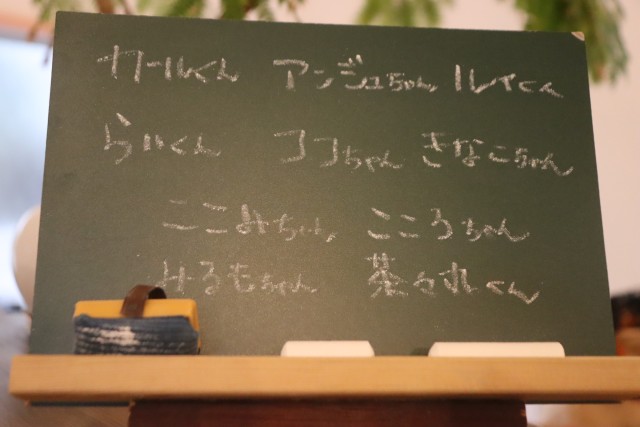 カールくん アンジュちゃん ルイくん
らいくん ココちゃん きなこちゃん
ここみちゃん こころちゃん
みるもちゃん 茶々丸くん